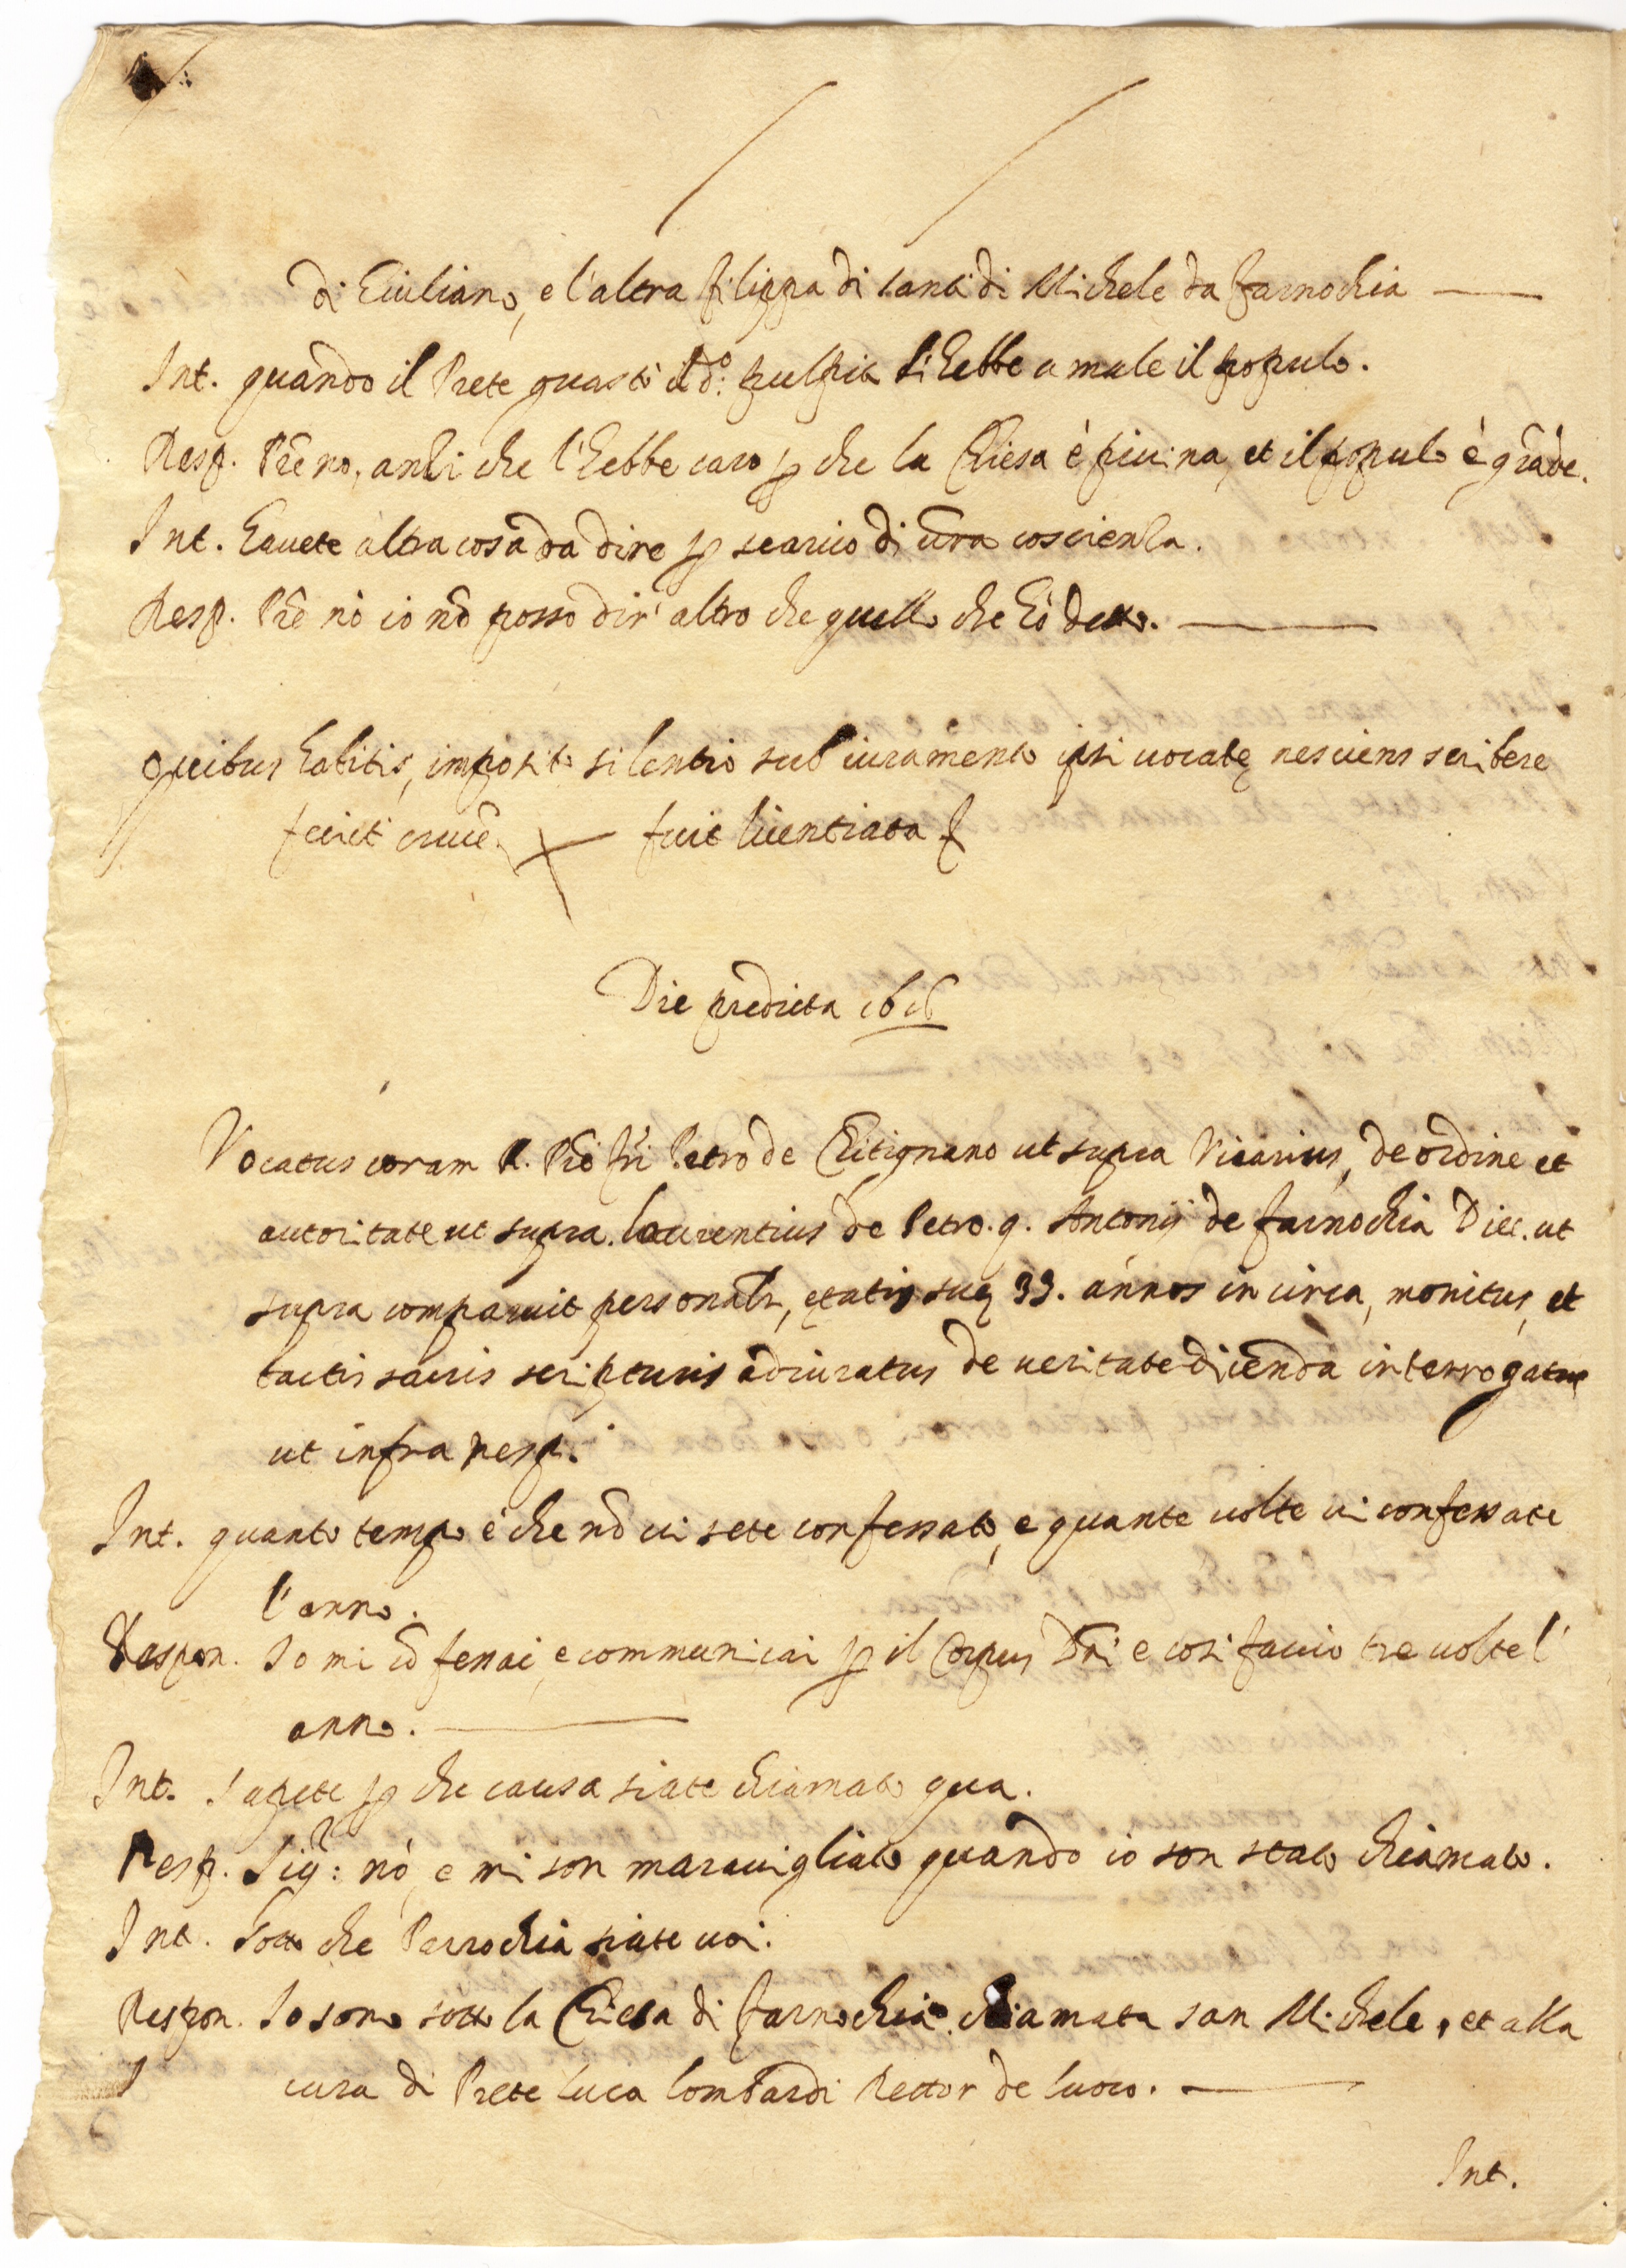 di Giuliano, e l'altra filippa di santi di Michele da farnochia
Int. quando il Prete guastò il dᵒ: pulpito li hebbe a male il populo.
Resp. Prê no, anzi che l'hebbe caro ꝑ che la Chiesa è picina, et il populo è grãde.
Int. havete altra cosa da dire ꝑ scarico di vr̃a coscienza.
Resp. Prê nò io nõ posso dir' altro che quello che hò detto.
Quibus habitis, imposito silentio sub iuramento ipsi vocatę nesciens scribere
fecit crucẽ. fuit licentiata
Die predicta 1616
Vocatus coram R. Prẽ fr̃i Petro de Chitignano ut supra Vicarius, de ordine et
autoritate ut supra. laurentius de Petro. q. Antonij de farnochia Diec. ut
supra comparuit personalr, ętatis suę 33. annos in circa, monitus, et
tactis sacris scripturis adiuratus de veritate dicenda interrogatus
ut infra resp.
Int. quanto tempo è che nõ vi sete confessato, e quante volte vi confessate
l'anno.
Respon. Io mi cõfessai, e communicai ꝑ il Corpus Dñi e cosi faccio tre volte l'
anno.
Int. Sapete ꝑ che causa siate chiamato qua.
Resp. Sigʳ: nò, e mi son maravigliato quando io son stato chiamato.
Int. Sotto che Parrochia siate voi.
Respon. Io sono sotto la Chiesa di farnochia chiamata san Michele, et alla
cura di Prete luca lombardi Rettor de luoco.
Int.